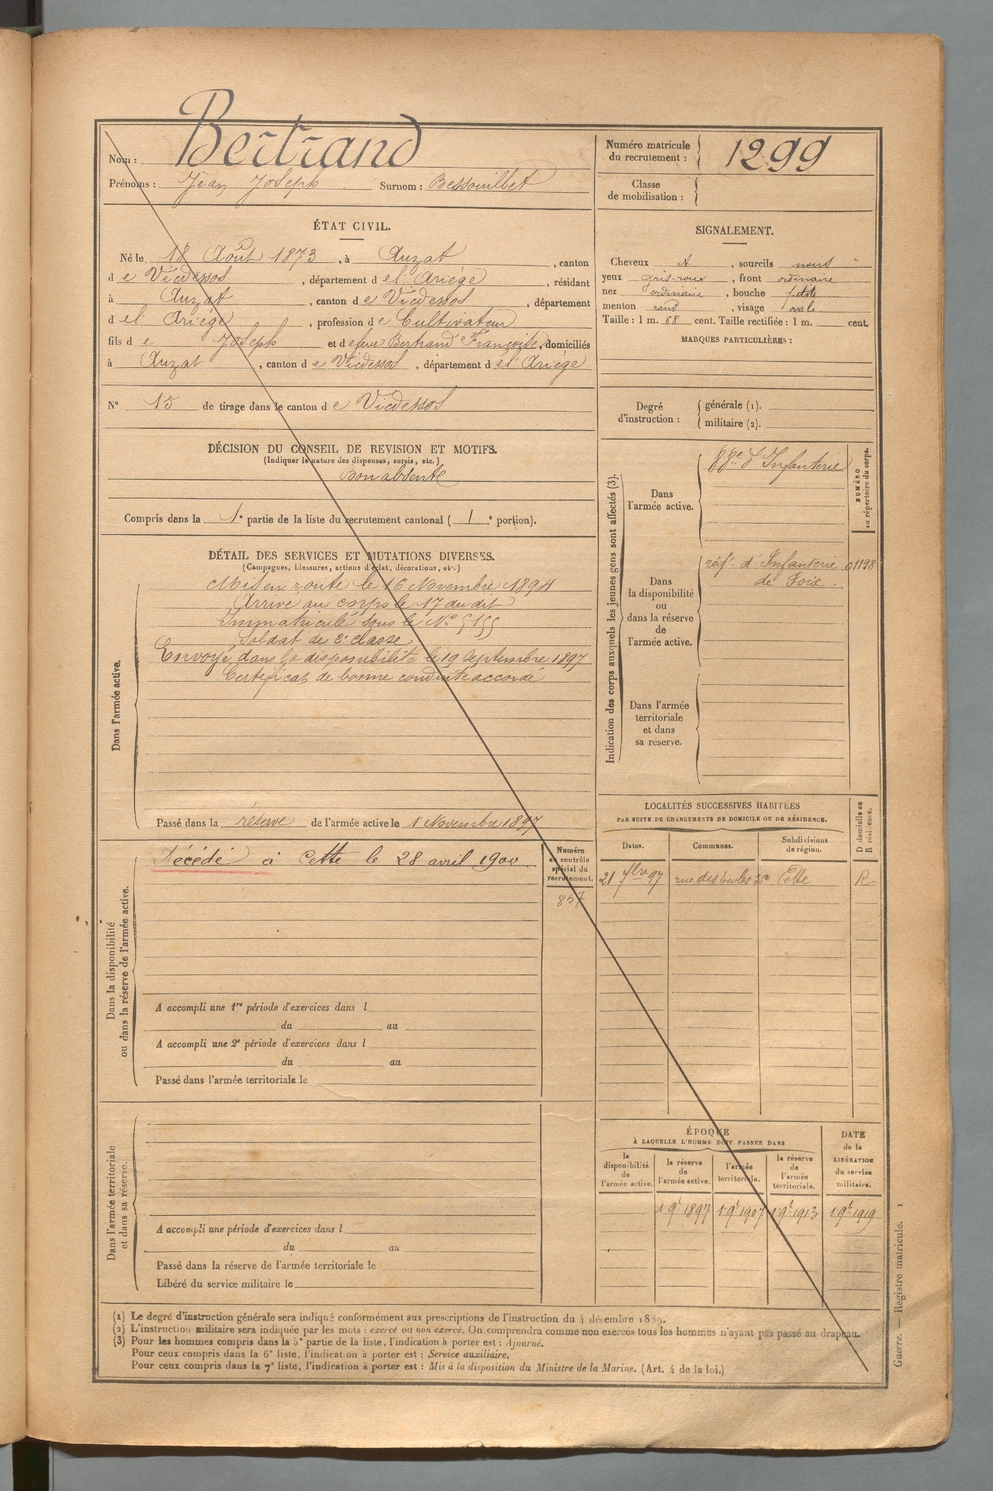 Nom : Bertrand
Prénoms : Jean Joseph Surnom : Bessouillet
Numéro matricule du recrutement : 1299
Classe de mobilisation :
ÉTAT CIVIL.
Né le 18 Août 1873, à Auzat, canton
de Vicdessos, département de l'Ariège, résidant
à Auzat, canton de Vicdessos, département
de l'Ariège, profession de Cultivateur
fils de Joseph et de feue Bertrand Françoise, domiciliés
à Auzat, canton de Vicdessos, département de l'Ariège
N° 15 de tirage dans le canton de Vicdessos
SIGNALEMENT.
Cheveux et, sourcils noirs
yeux gris-roux, front ordinaire
nez ordinaire, bouche petite
menton rond, visage ovale
Taille : 1 m. 68 cent. Taille rectifiée : 1 m. cent.
MARQUES PARTICULIÈRES :
Degré d'instruction : générale (1).
militaire (2).
DÉCISION DU CONSEIL DE REVISION ET MOTIFS.
(Indiquer la nature des dispenses, sursis, etc.)
Bon absent
Compris dans la 1e partie de la liste du recrutement cantonal ( 1e portion).
DÉTAIL DES SERVICES ET MUTATIONS DIVERSES.
(Campagnes, blessures, actions d'éclat, décorations, etc.)
Dans l'armée active.
Mis en route le 16 Novembre 1894
Arrivé au corps le 17 du dit
Immatriculé sous le N° 5155
Soldat de 2e classe
Envoyé dans la disponibilité le 19 Septembre 1897
Certificat de bonne conduite accordé
Passé dans la réserve de l'armée active le 1 Novembre 1897
Indication des corps auxquels les jeunes gens sont affectés (3).
NUMÉRO au répertoire du corps.
Dans l'armée active.
88e d'Infanterie
Dans la disponibilité ou dans la réserve de l'armée active.
rég.t d'Infanterie 01198
de Foix.
Dans l'armée territoriale et dans sa réserve.
Dans la disponibilité ou dans la réserve de l'armée active.
Décédé à Cette le 28 avril 1900
Numéro au contrôle spécial du recrutement.
857
A accompli une 1re période d'exercices dans l
du au
A accompli une 2e période d'exercices dans l
du au
Passé dans l'armée territoriale le
LOCALITÉS SUCCESSIVES HABITÉES
PAR SUITE DE CHANGEMENTS DE DOMICILE OU DE RÉSIDENCE.
Dates. Communes. Subdivisions de région. D domicile ou R résidence.
21 7bre 97 rue des 35 Cette R
Dans l'armée territoriale et dans sa réserve.
A accompli une période d'exercices dans l
du au
Passé dans la réserve de l'armée territoriale le
Libéré du service militaire le
ÉPOQUE
À LAQUELLE L'HOMME DOIT PASSER DANS
la disponibilité de l'armée active.
la réserve de l'armée active.
l'armée territoriale.
la réserve de l'armée territoriale.
DATE de la LIBÉRATION du service militaire.
1 9b 1897 1 9b 1907 1 9b 1913 1 9b 1919
(1) Le degré d'instruction générale sera indiqué conformément aux prescriptions de l'instruction du 4 décembre 1889.
(2) L'instruction militaire sera indiquée par les mots : exercé ou non exercé. On comprendra comme non exercés tous les hommes n'ayant pas passé au drapeau.
(3) Pour les hommes compris dans la 5e partie de la liste, l'indication à porter est : Ajourné.
Pour ceux compris dans la 6e liste, l'indication à porter est : Service auxiliaire.
Pour ceux compris dans la 7e liste, l'indication à porter est : Mis à la disposition du Ministre de la Marine. (Art. 4 de la loi.)
Guerre. — Registre matricule. 1